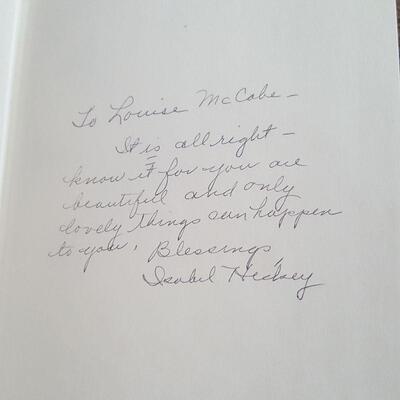 To Louise McCabe -
It is all right -
know it for you are
beautiful and only
lovely things can happen
to you. Blessings,
Isabel Hickey